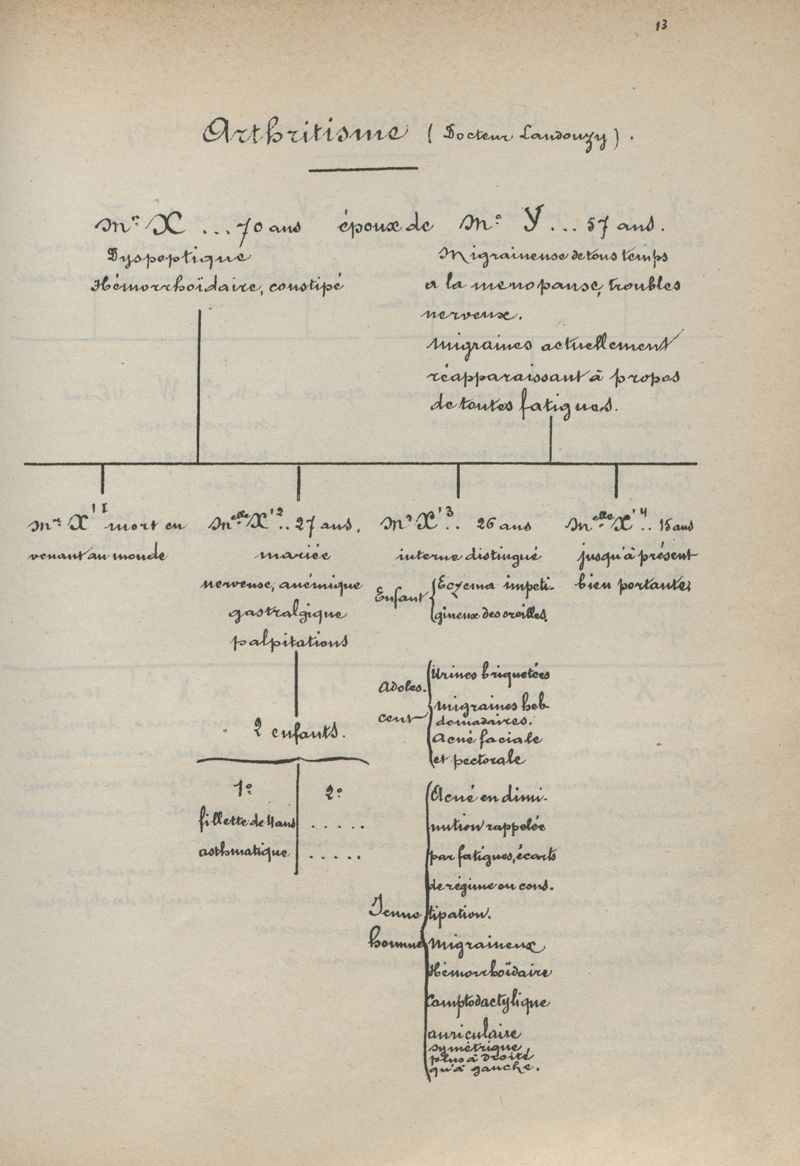 13
Arthritisme (Docteur Landouzy).
Mr X ... 70 ans époux de Me Y ... 57 ans.
Dyspeptique
Hémorrhoïdaire, constipé
Migraineuse de tous temps
a la menopause, troubles
nerveux.
Migraines actuellement
réapparaissant à propos
de toutes fatigues.
Mr X'1 mort en
venant au monde
Melle X'2.. 27 ans,
mariée
nerveuse, anémique
gastralgique
palpitations
2 enfants.
1º
fillette de 4 ans
asthmatique
2º
.....
.....
Mr X'3.. 26 ans
interne distingué
Enfant
Eczema impeti-
gineux des oreilles.
Adoles-
cent
Urines briquetées
Migraines heb-
domadaires.
Acné faciale
et pectorale
Jeune
homme
Acné en dimi-
nution rappelée
par fatigues, écarts
de régime ou cons-
tipation.
Migraineux
Hémorrhoïdaire
Camptodactylique
auriculaire
symétrique,
plus à droite
qu'à gauche.
Melle X'4.. 15 ans
jusqu'à présent
bien portante.